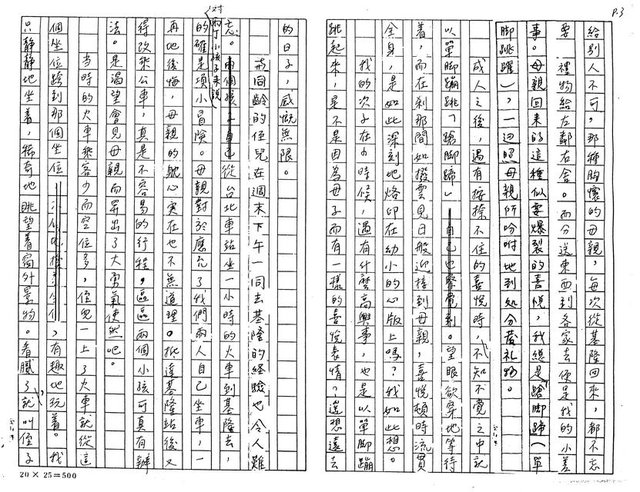 P.3
給別人不可，那擁胸懷的母親，每次從基隆回來，都不忘
要禮物給左鄰右舍。而分送東西到各家去便是我的小差
事。母親回來的這種似要爆裂的喜悅，我總是蹌脚蹄（單
脚跳躍），一迴照母親所吩咐地到處分着禮物。
成人之後，遇有按捺不住的喜悅時，不知不覺之中就
以單脚蹦跳（蹌脚蹄）自己也驚愕。望眼欲穿地等待
着，而在刹那間如撥雲見日般迎接到母親，喜悅頓時流貫
全身，是如此深刻地烙印在幼小的心版上嗎？我如此想。
我的次子在小時候，遇有什麼高興事，也是以單脚蹦
跳起來，是不是因為母子而有一樣的喜悅表情，遙想遠去
的日子，感慨無限。
和同齡的侄兒在週末下午一同去基隆的經驗也令人難
忘。兩個孩子自己從台北車站坐一小時的火車到基隆去，
對兩個小孩子來說
的確是項小冒險。母親對於應允了我們兩人自己坐車，一
再地後悔，母親的躭心實在也不無道理。抵達基隆站後又
得改乘公車，真是不容易的行程。區區兩個小孩可真有辦
法。是渴望會見母親而昇出了大勇氣使然吧。
當時的火車乘客少而空位多，侄兒一上了火車就從這
個坐位跨到那個坐位，有趣地玩着。我
只靜靜地坐着，稀奇地眺望着窗外景物。看膩了就叫侄子
20×25=500